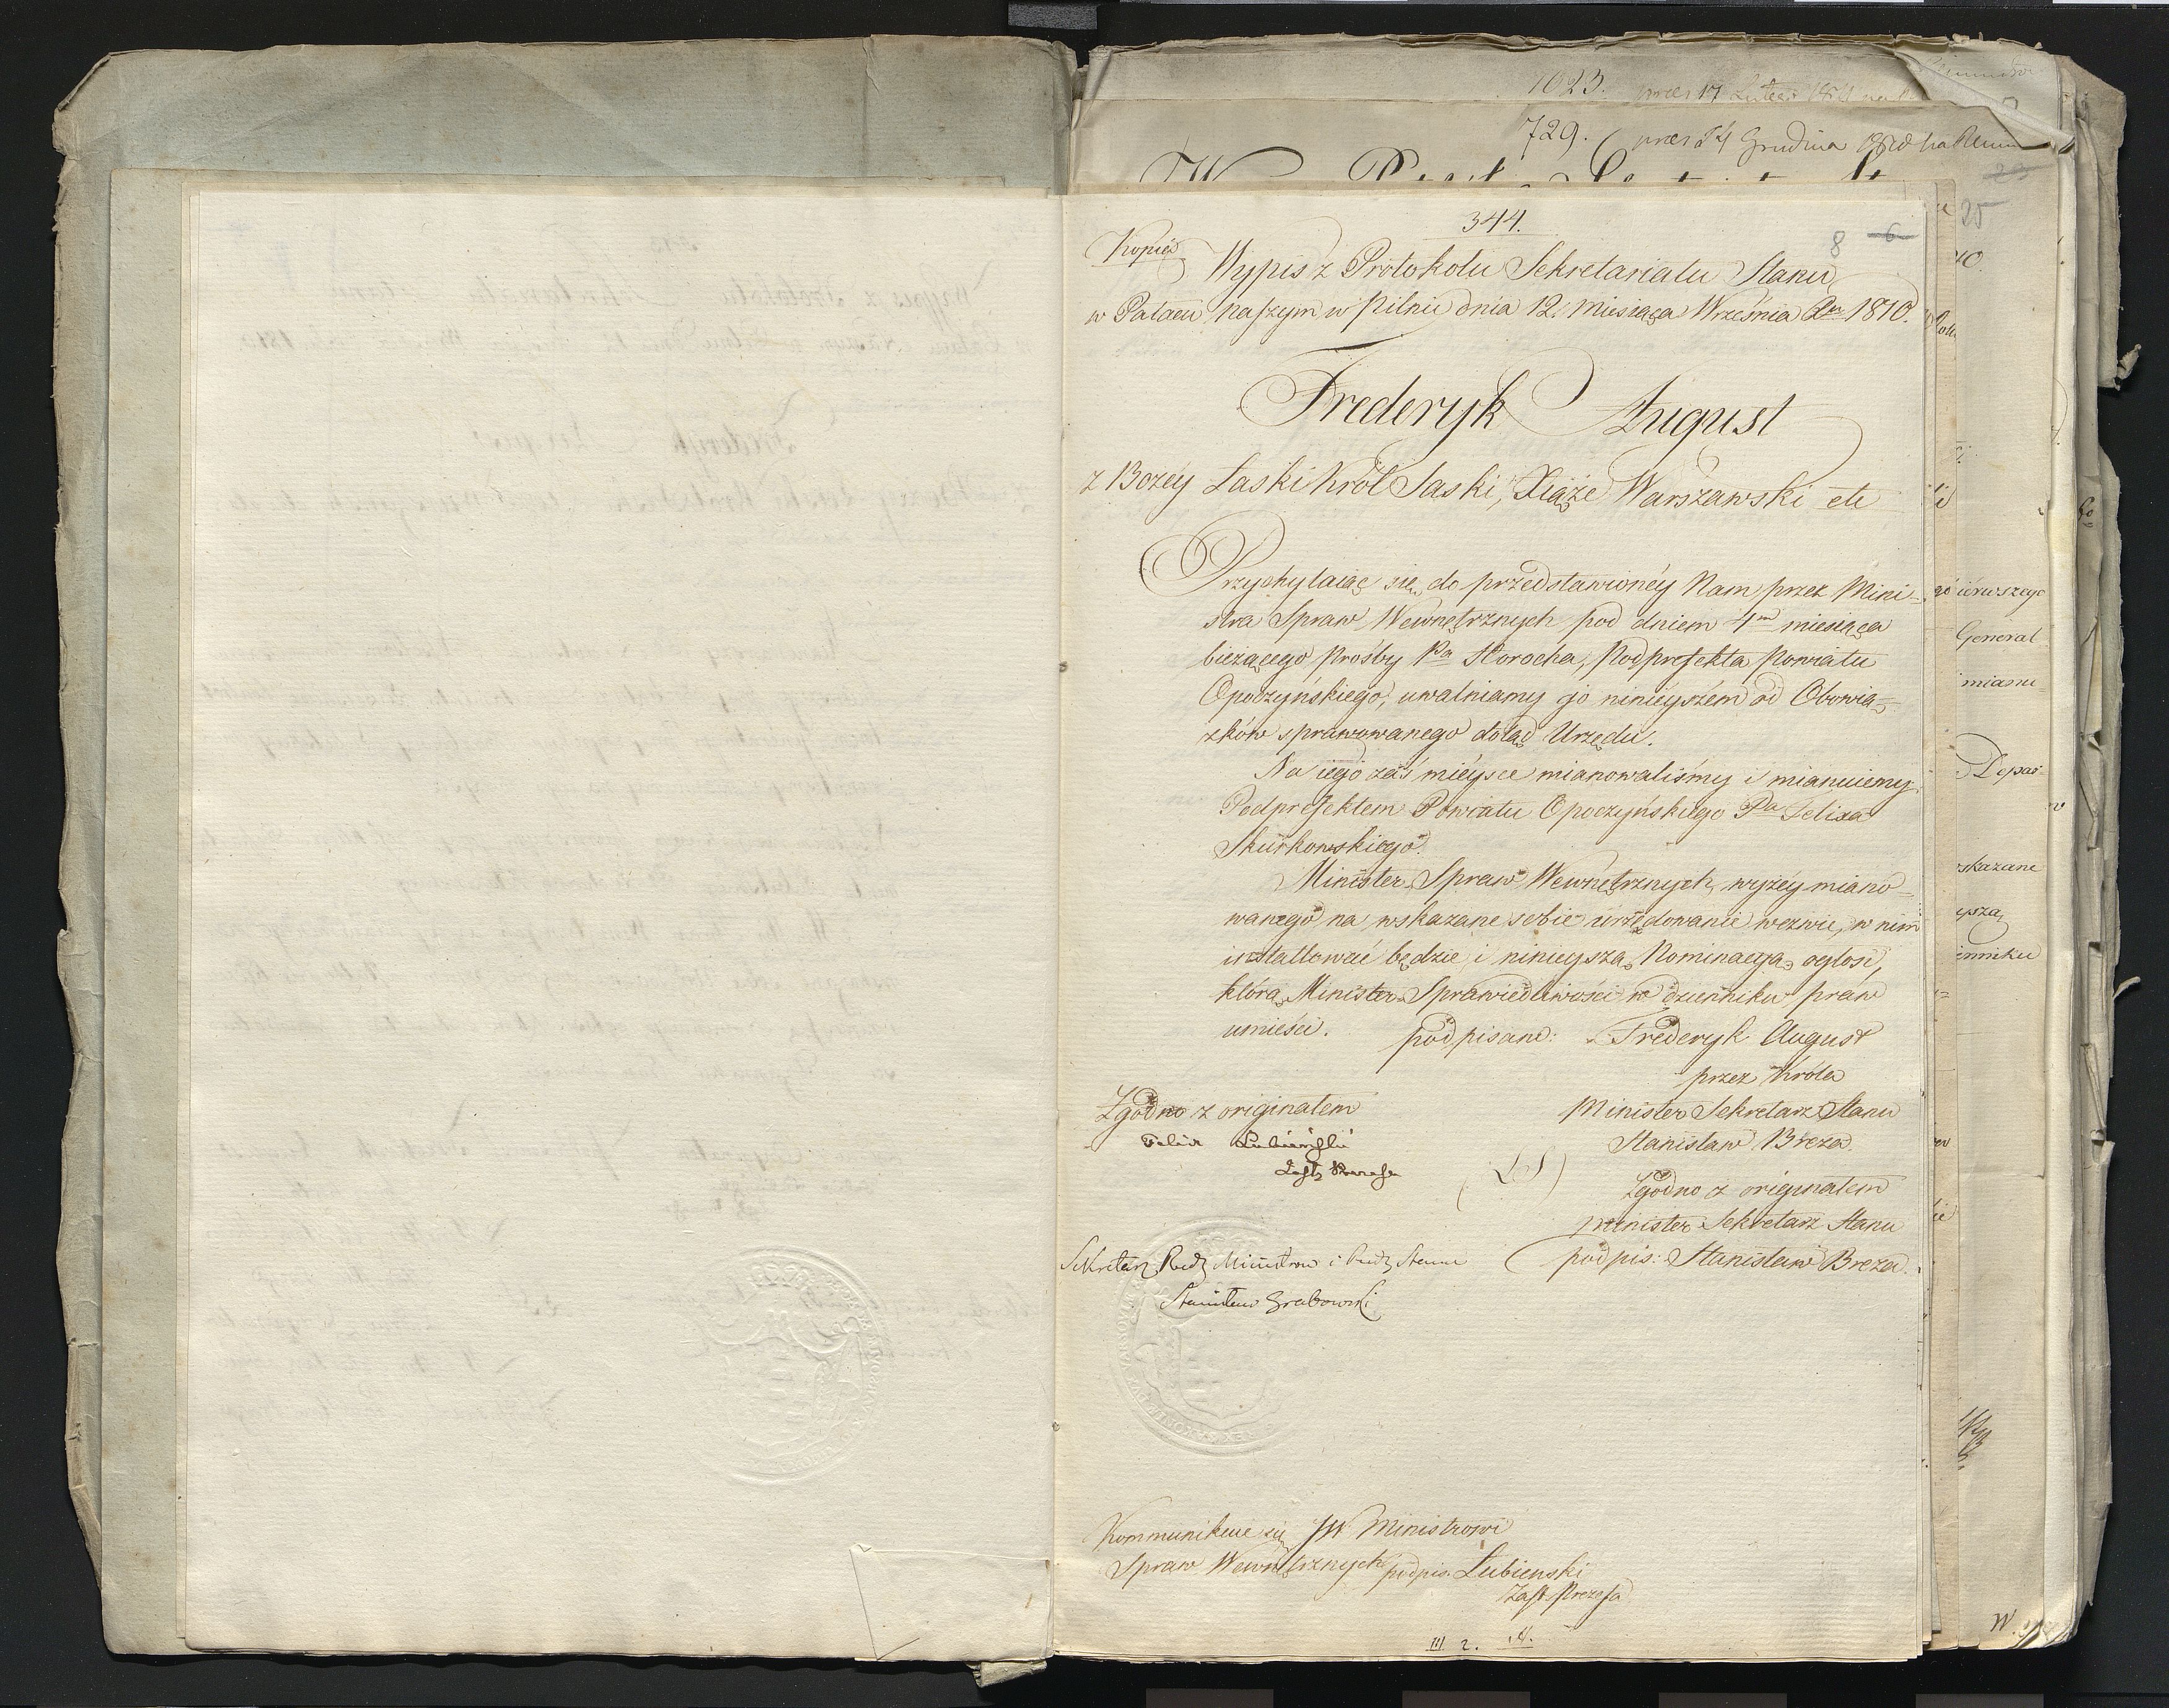 1023.
729.
344.
8 6
Kopia
Wypis z Protokołu Sekretariatu Stanu
w Pałacu Naszym w Pilnic dnia 12. Miesiąca Września Ru 1810.
Frederyk August
z Bożey Łaski Król Saski, Xiąże Warszawski etc
Przychylaiąc się do przedstawionéy Nam przez Mini-
stra Spraw Wewnętrznych pod dniem 4m miesiąca
bieżącego prośby Pa Horocha, Podprefekta Powiatu
Opoczyńskiego, uwalniamy go ninieyszem od Obowią-
zków sprawowanego dotąd Urzędu.
Na iego zaś mieysce mianowaliśmy i mianuiemy
Podprefektem Powiatu Opoczyńskiego Pa Felixa
Skurkowskiego.
Minister Spraw Wewnętrznych wyżey miano-
wanego na wskazane sobie urzędowanie wezwie, w nim
installować będzie i ninieyszą Nominacyą ogłosi,
którą Minister Sprawiedliwości w dzienniku praw
umieści. podpisano: Frederyk August
przez Króla
Minister Sekretarz Stanu
Stanisław Breza.
Zgodno z originałem
Felix Łubieński
Zastę Prezesa
(LS)
Zgodno z originałem
Minister Sekretarz Stanu
podpis: Stanisław Breza.
Sekretarz Rady Ministrow i Rady Stanu
Stanisław Grabowski
Kommunikuie się JW Ministrowi
Spraw Wewnętrznych podpis. Łubienski
Zast. Prezesa
25
General
mianu-
Depar-
wskazane